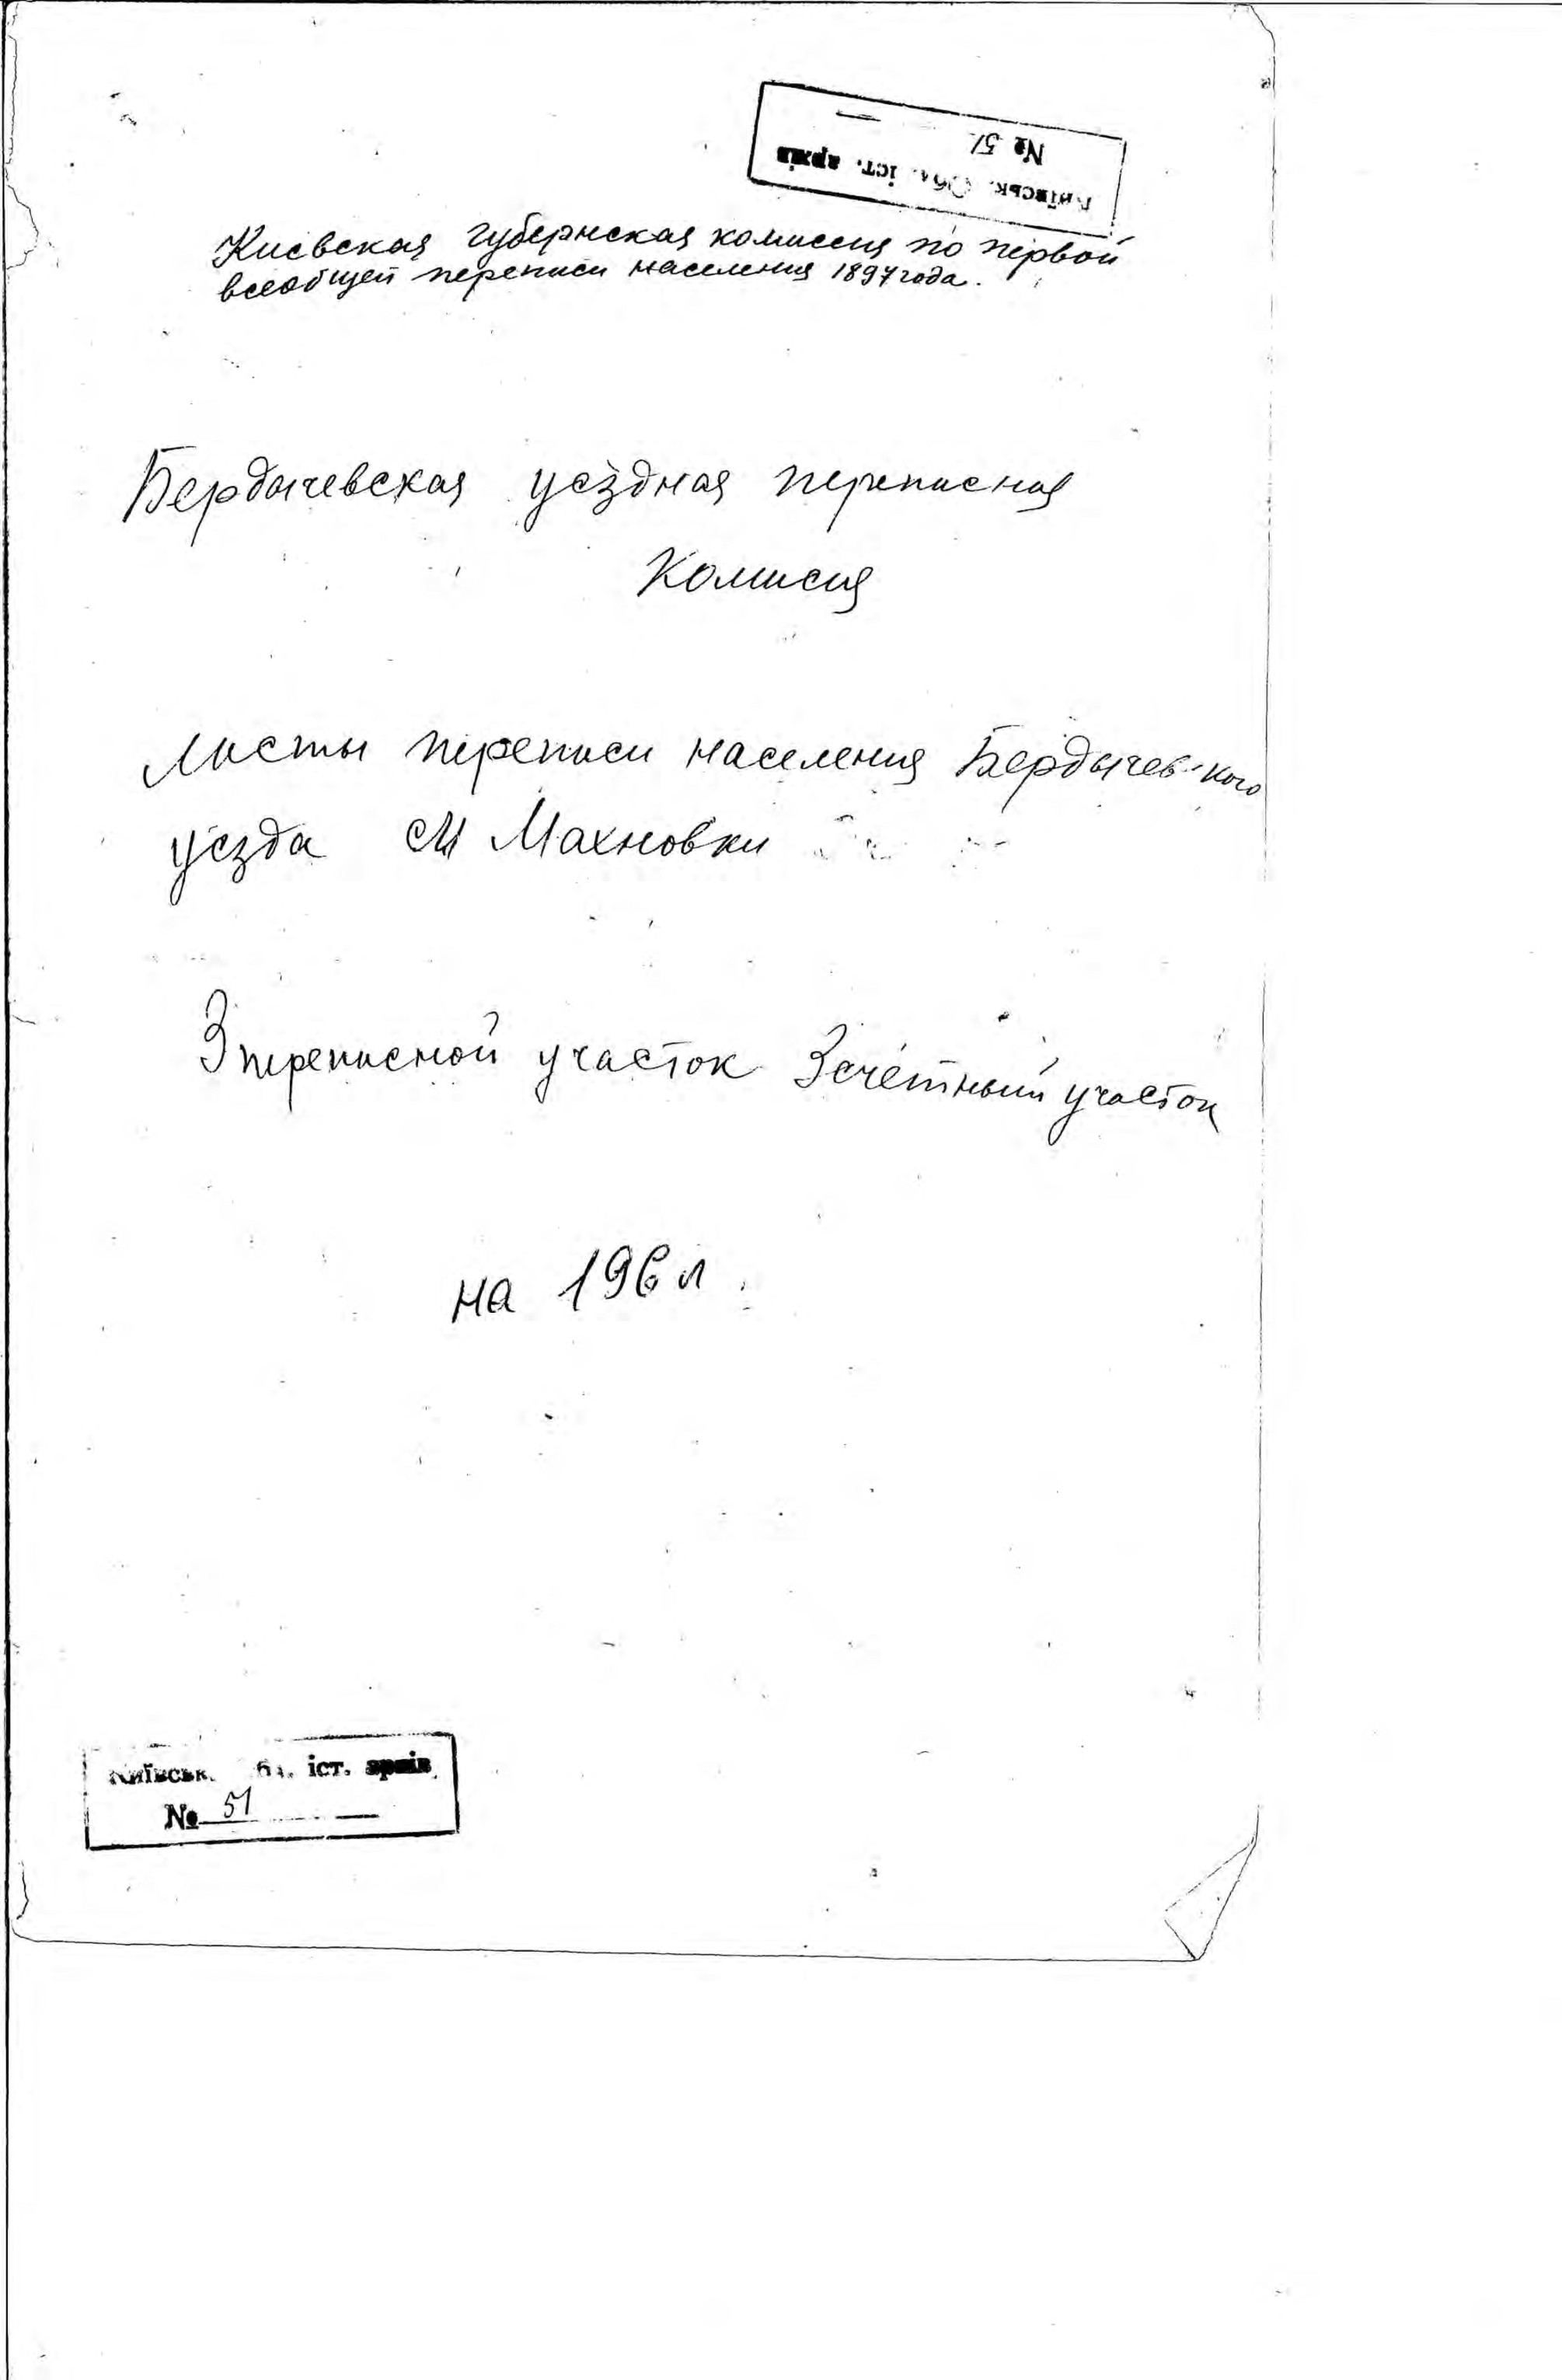 № 51
Київськ. Обл. іст. архів
Киевская губернская комиссия по первой
всеобщей переписи населения 1897 года.
Бердычевская уездная переписная
Комисия
Листы переписи населения Бердычевского
уезда м Махновки
3 переписной участок 3 счётный участок
на 196 л.
Київськ. обл. іст. архів
№ 51